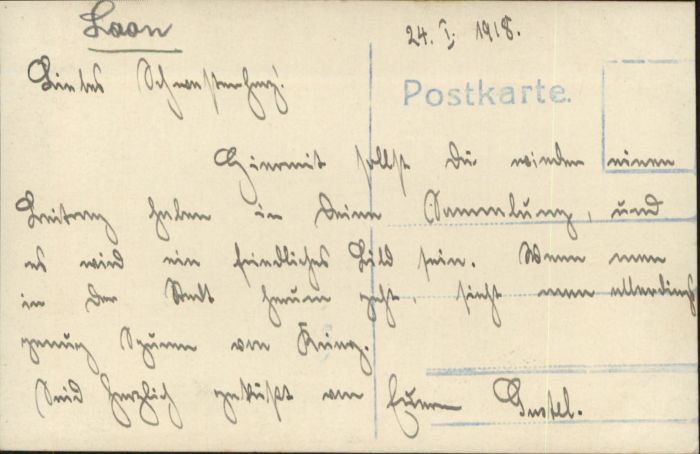 Laon
24. I. 1918.
Postkarte.
Liebes Schwesterherz!
Hiermit sollst Du wieder einen
Beitrag haben in Deine Sammlung, und
es wird ein friedliches Bild sein. Wenn man
in der Stadt herum geht, sieht man allerdings
genug Spuren von Krieg.
Seid herzlich geküßt von Eurem Gustel.